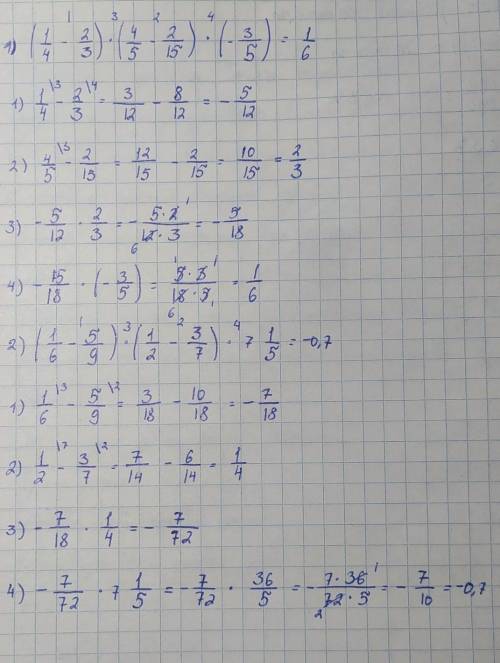 1) (1/4 - 2/3) · (4/5 - 2/15) · (-3/5) = 1/6
1) 1/4 \3 - 2/3 \4 = 3/12 - 8/12 = -5/12
2) 4/5 \3 - 2/15 = 12/15 - 2/15 = 10/15 = 2/3
3) -5/12 · 2/3 = -5·2/12·3 = -5/18
4) -5/18 · (-3/5) = 5·3/18·5 = 1/6
2) (1/6 - 5/9) · (1/2 - 3/7) · 7 1/5 = -0,7
1) 1/6 \3 - 5/9 \2 = 3/18 - 10/18 = -7/18
2) 1/2 \7 - 3/7 \2 = 7/14 - 6/14 = 1/4
3) -7/18 · 1/4 = -7/72
4) -7/72 · 7 1/5 = -7/72 · 36/5 = -7·36/72·5 = -7/10 = -0,7